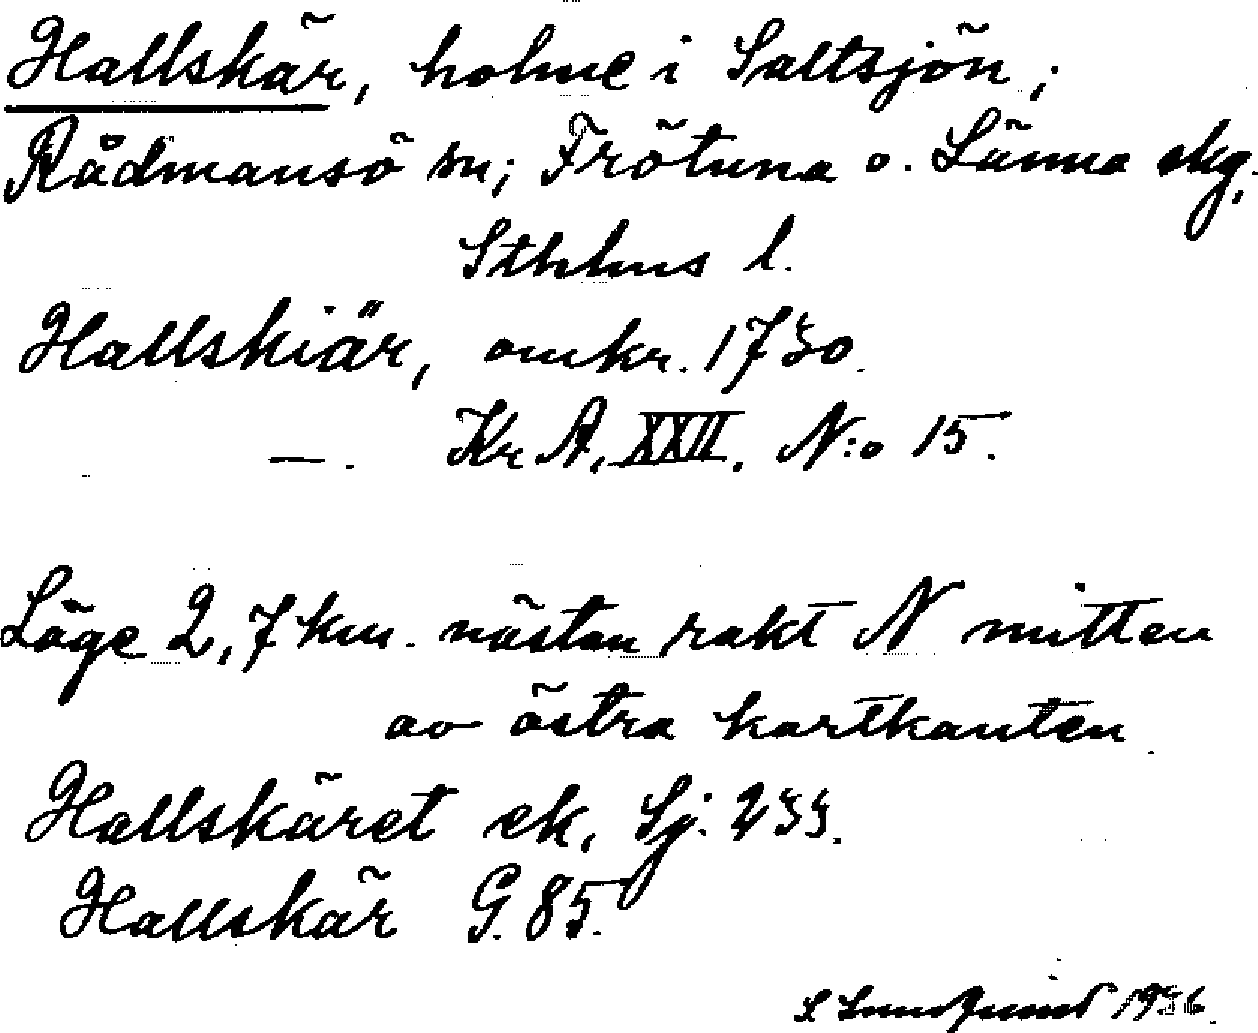 Hallskär, holme i Saltsjön;
Rådmansö sn; Frötuna o. Länna skg,
Sthlms l.
Hallskiär, omkr. 1730.
—. Kr A. XXII. N:o 15.
Läge 2,7 km. nästan rakt N mitten
av östra kartkanten.
Hallskäret ek. Sj. 233.
Hallskär G. 85.
1936.